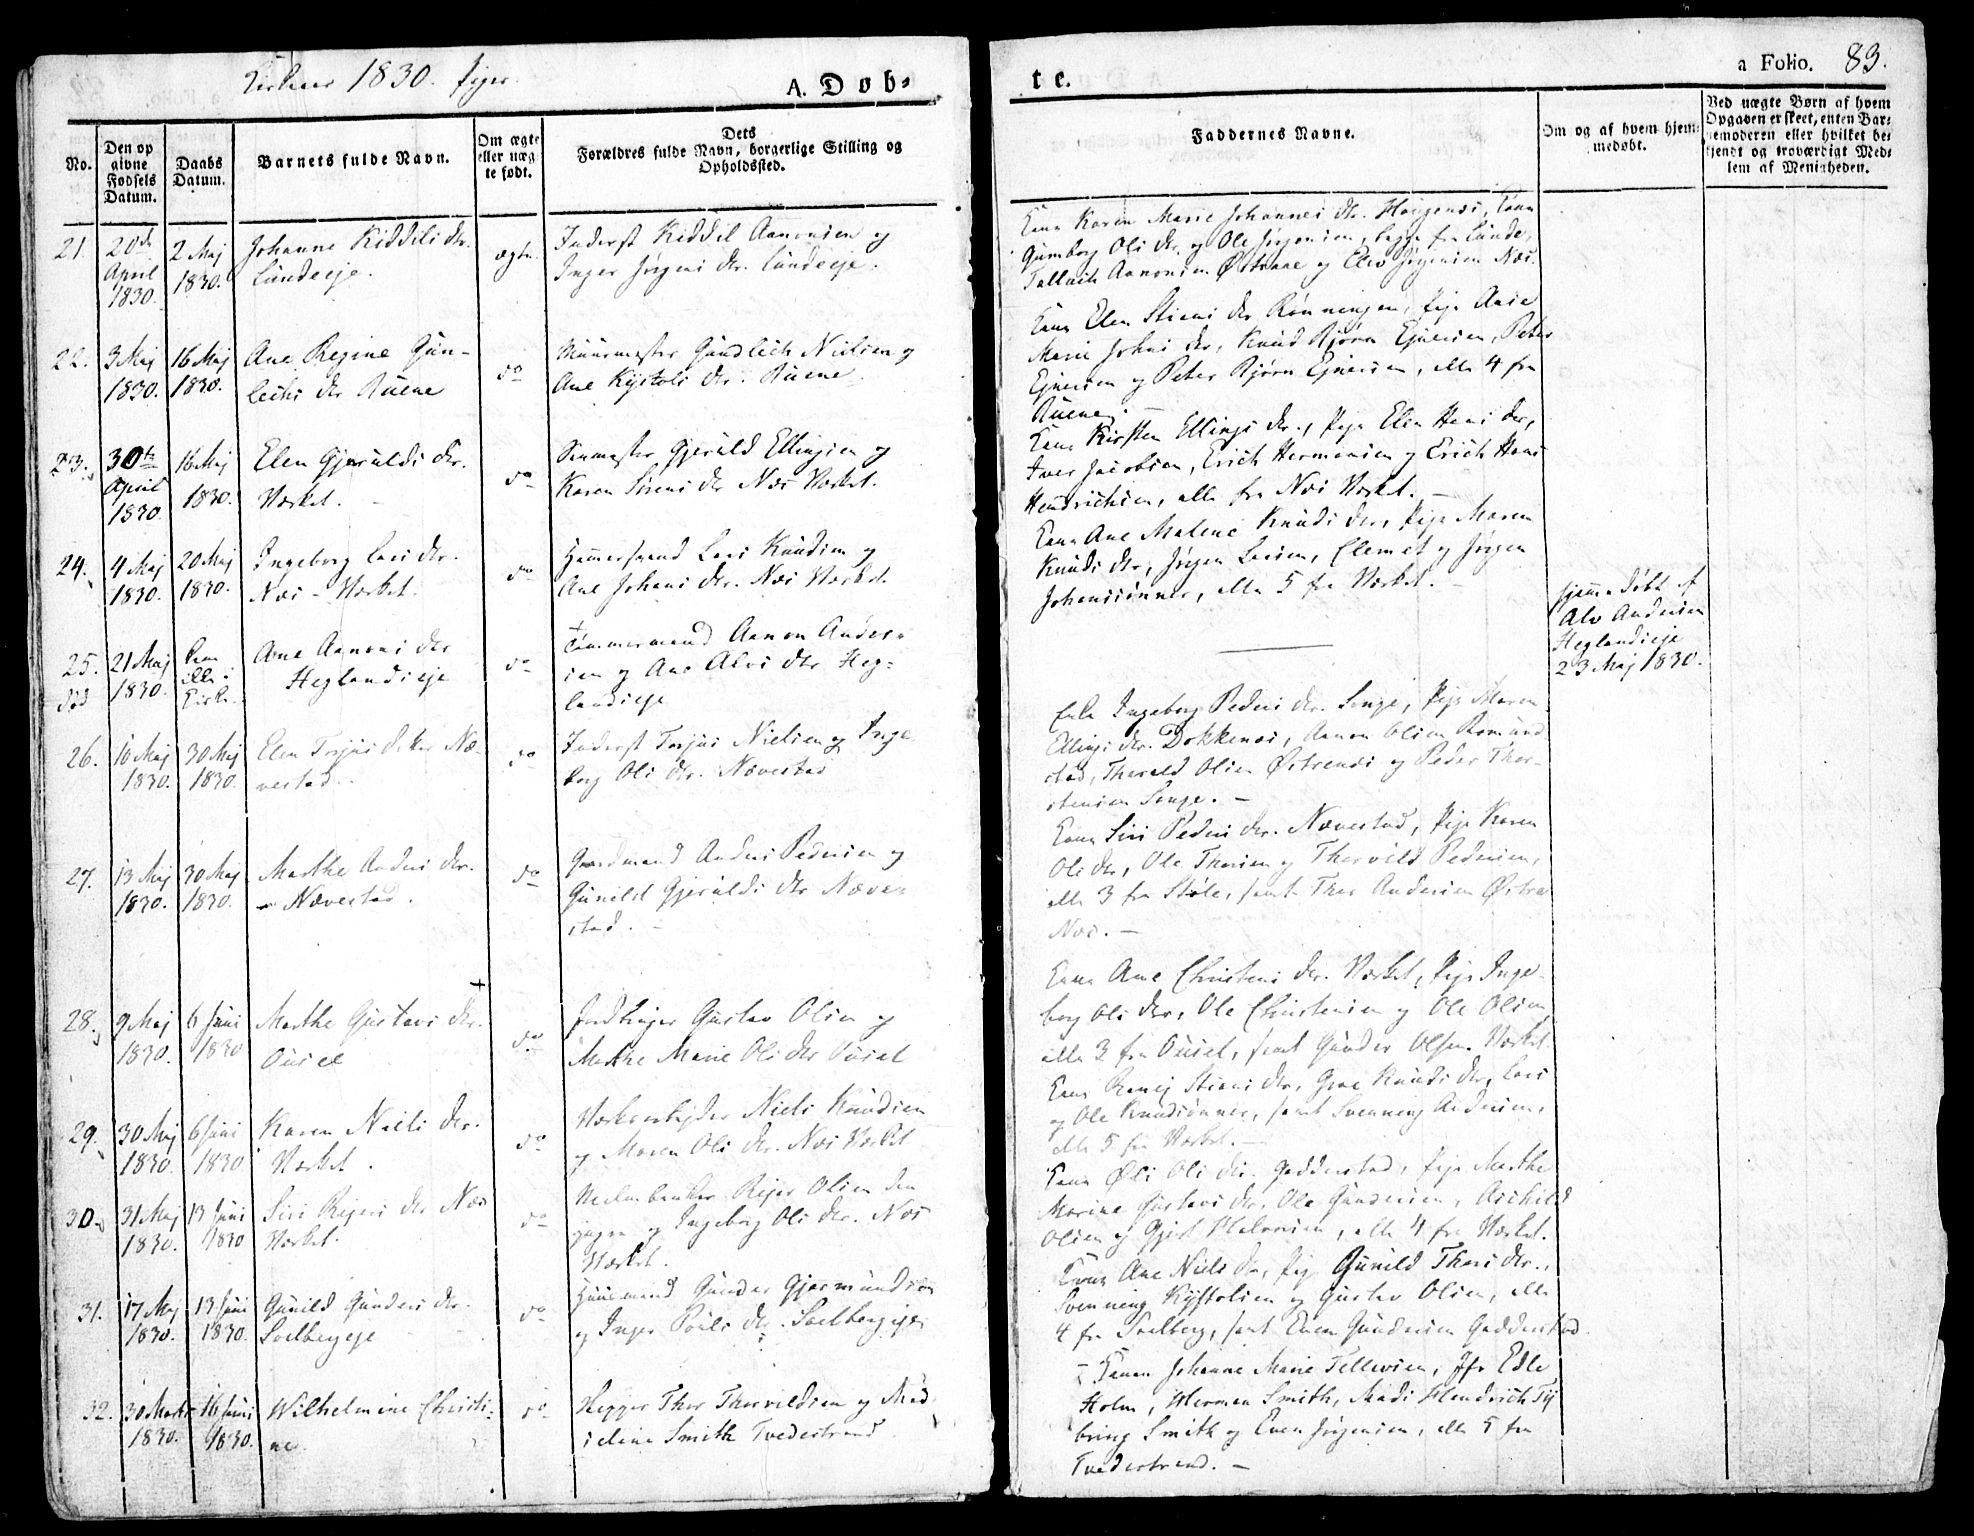 1830.
A. Dob-
te.
a Folio. 83.
No.
Den op
givne
Fødsels
Datum.
Daabs
Datum.
Barnets fulde Navn.
Om ægte
eller uæg-
te født.
Dets
Forældres fulde Navn, borgerlige Stilling og
Opholdssted.
Faddernes Navne.
Om og af hvem hjem-
medøbt.
Ved uægte Børn af hvem
Opgaven er skeet, enten Bar-
nemoderen eller hvilket be-
kjendt og troværdigt Med-
lem af Menigheden.
21.
20de
April
1830.
2 Maj
1830.
Johanne Kiddils Dtr.
Lundeeje.
ægte
Inderst Kiddil Aanonsen og
Inger Jørgens Dtr. Lundeeje.
Kone Karen Marie Johannes Dtr. , Kone
Gumborg Ols Dtr. og Ole Jørgensen, begge fra Lunde,
Aanonsen og Jørgensen Næs.
22.
3 Maj
1830.
16 Maj
1830.
Ane Regine Gun-
lechs Dtr
do
Muurmester Gundlech Nielsen og
Ane Kystols Dtr.
Kone Elen Stians Dtr Rønningen, Pige Ane
Marie Johns Dtr, Knud Bjørn Ejversen, Peter
Ejversen og Peter Bjørn Ejversen, alle 4 fra
23.
30te
April
1830
16 Maj
1830.
Elen Gjerulds Dtr.
Værket.
do
Gjeruld Ellingsen og
Karen Sørens Dtr Næs Værket.
Kone Kirsten Ellings Dtr., Pige Elen Hans Dtr,
Iver Jacobsen, Erich Hermansen og Erich Hans
Hendrichsen, alle fra Næs Værket.
24.
4 Maj
1830.
20 Maj
1830.
Ingeborg Lars Dtr.
Næs-Værket.
do
Hammersmed Lars Knudsen og
Ane Johans Dtr. Næs Værket.
Kone Ane Malene Knuds Dtr, Pige Maren
Knuds Dtr, Jørgen Larsen, Clemet og Jørgen
Johanssønner, alle 5 fra Værket.
25.
død
21 Maj
1830.
Kom
ikke i
Kirke.
Ane Aanons Dtr
Heglandseje
do
Tømmermand Aanon Anders-
sen og Ane Alvs Dtr Heg-
landseje
hjemmedøbt af
Alv Andersen
Heglandseje
23 Maj 1830.
26.
10 Maj
1830.
30 Maj
1830.
Elen Terjes Datter Næ-
vestad.
do
Inderst Terjes Nielsen og Inge
borg Ols Dtr. Nævestad
Enke Ingeborg Peders Dtr. Songe, Pige Maren
Ellings Dtr. Dokkenæs, Aanon Olsen Romund
stad, Thorald Olsen og Peder Thor-
stensen Songe.
27.
13 Maj
1830.
30 Maj
1830.
Marthe Anders Dtr.
Nævestad.
do
Gaardmand Anders Pedersen og
Gunild Gjerulds Dtr Næve-
stad.
Kone Siri Peders Dtr. Nævestad, Pige Karen
Ols Dtr, Ole Thorsen og Thorvild Pedersen,
alle 3 fra Støle, samt Thor Andersen Østre
Næs.
28.
9 Maj
1830.
6 Juni
1830
Marthe Gustavs Dtr.
+
do
Gustav Olsen og
Marthe Marie Ols Dtr
Kone Ane Christens Dtr. Værket, Pige Inge-
borg Ols Dtr, Ole Christensen og Ole Olsen,
alle 3 fra , samt Gunder Olsen Værket
29.
30 Maj
1830.
6 Juni
1830
Karen Niels Dtr.
Værket.
do
Værksarbejder Niels Knudsen
og Maren Ols Dtr. Næs Værket
Kone Stians Dtr, Knuds Dtr, Lars
og Ole Knudsønner, samt Svenning Andersen,
alle 5 fra Værket.
30.
31 Maj
1830.
13 Juni
1830
Siri Rejers Dtr Næs
Værket.
do
Rejer Olsen den
yngre og Ingeborg Ols Dtr. Næs
Værket.
Kone Ols Dtr. Goderstad, Pige Marthe
Marine Gustavs Dtr, Ole Gundersen,
Olsen og Halvorsen, alle 4 fra Værket.
31.
17 Maj
1830.
13 Juni
1830.
Gunild Gunders Dtr.
Solbergeje
do
Huusmand Gunder Gjermundsen
og Inger Pouls Dtr. Solbergeje
Kone Ane Niels Dtr, Pige Gunild Thors Dtr.,
Svenning Kystolsen og Gustav Olsen, alle
4 fra Solberg, samt Even Gundersen Godderstad.
32.
30 Marts
1830.
16 Juni
1830.
Wilhelmine Christi-
ne.
do
Thor Thorvildsen og Mad
seline Smith Tvedestrand
Konen Johanne Marie Tellevsen, Jfr Edle
Holm, Herman Smith, Mads Hendrich Ty
bring Smith og Even Jørgensen, alle 5 fra
Tvedestrand.